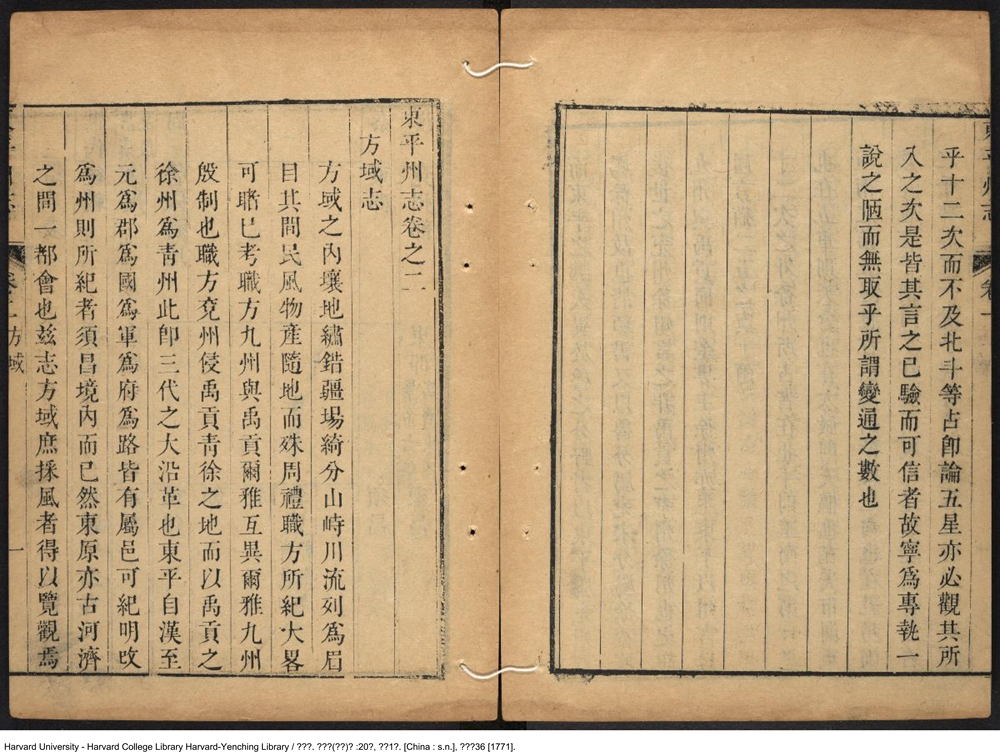 東平州志 卷一
乎十二次而不及北斗等占卽論五星亦必觀其所
入之次是皆其言之已驗而可信者故寧爲專執一
說之陋而無取乎所謂變通之數也
東平州志卷之二
方域志
方域之內壤地繡錯疆場綺分山峙川流列爲眉
目其間民風物產隨地而殊周禮職方所紀大畧
可睹已考職方九州與禹貢爾雅互異爾雅九州
殷制也職方兗州侵禹貢靑徐之地而以禹貢之
徐州爲靑州此卽三代之大沿革也東平自漢至
元爲郡爲國爲軍爲府爲路皆有屬邑可紀明攺
爲州則所紀者須昌境內而已然東原亦古河濟
之間一都會也玆志方域庶採風者得以覽觀焉
方域 一
Harvard University - Harvard College Library Harvard-Yenching Library / ???. ???(??)? :20?, ??1?. [China : s.n.], ???36 [1771].